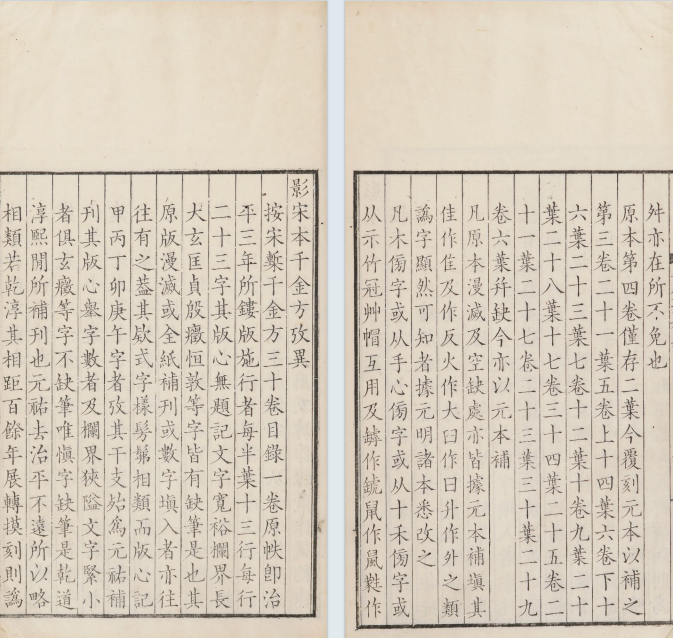 影宋本千金方攷異
按宋槧千金方三十卷目錄一卷原帙卽治
平三年所鏤版施行者每半葉十三行每行
二十三字其版心無題記文字寬裕欄界長
大玄匡貞殷徵恒敦等字皆有缺筆是也其
原版漫滅或全紙補刊或數字塡入者亦往
往有之葢其欵式字樣髣髴相類而版心記
甲丙丁卯庚午字者攷其干支殆爲元祐補
刊其版心舉字數者及欄界狹隘文字緊小
者俱玄徵等字不缺筆唯愼字缺筆是乾道
淳熙閒所補刊也元祐去治平不遠所以略
相類若乾淳其相距百餘年展轉摸刻則譌
舛亦在所不免也
原本第四卷僅存二葉今覆刻元本以補之
第三卷二十一葉五卷上十四葉六卷下十
六葉二十三葉七卷十二葉十卷九葉二十
葉二十八葉十七卷三十四葉二十五卷二
十一葉二十七卷二十三葉三十葉二十九
卷六葉幷缺今亦以元本補
凡原本漫滅及空缺處亦皆據元本補塡其
佳作隹及作反火作大日作曰升作外之類
譌字顯然可知者據元明諸本悉改之
凡木傍字或从手心傍字或从十禾傍字或
从示竹冠艸帽互用及罅作鼠作鼡作